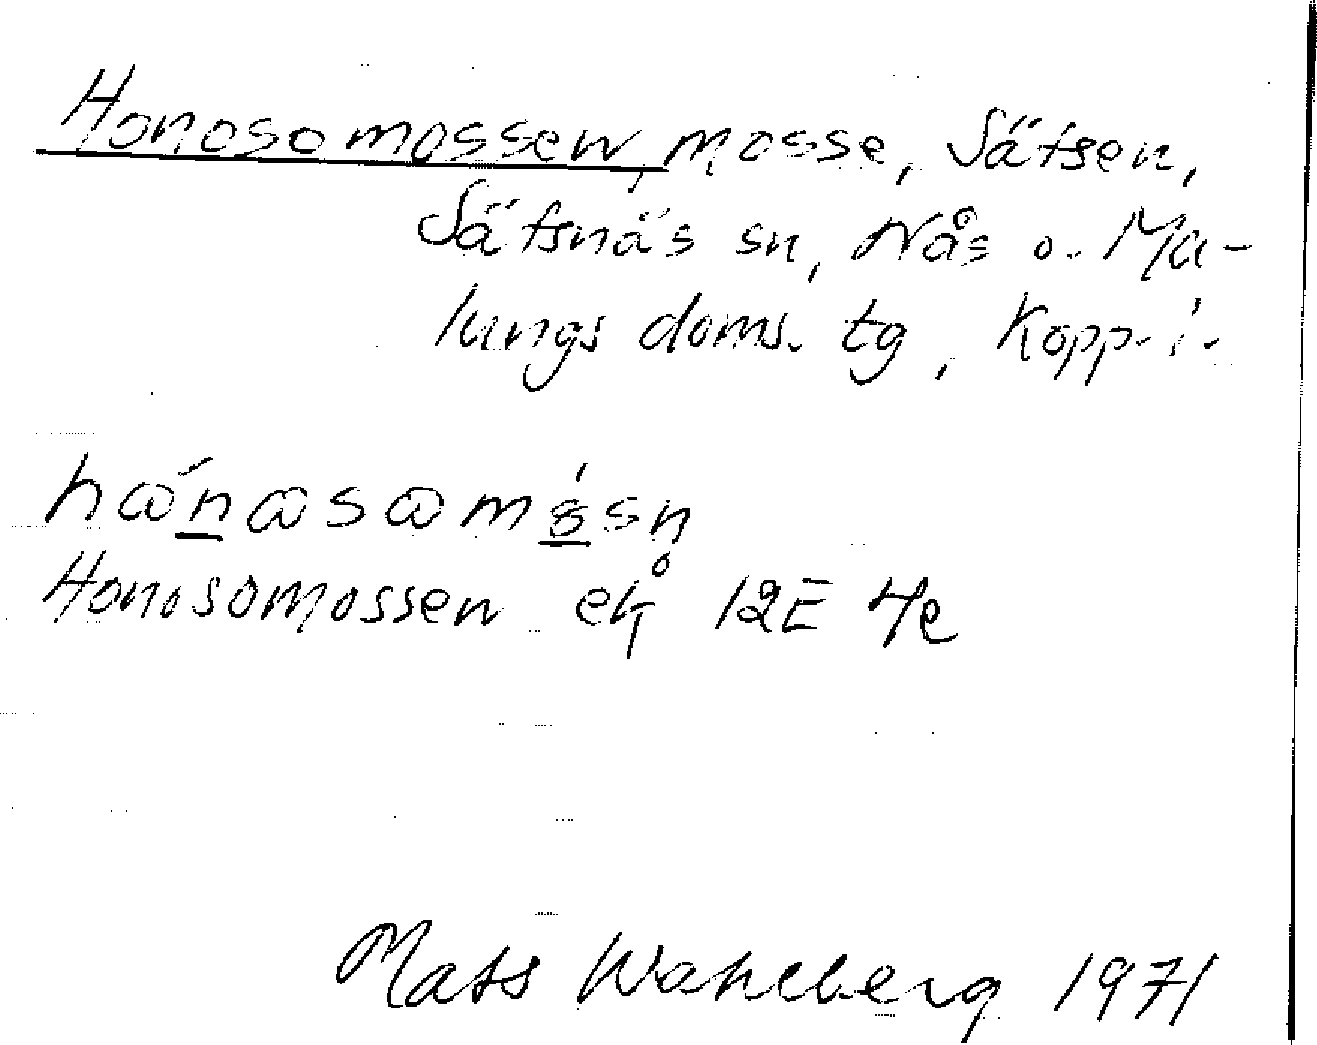 Honosomossen, mosse, Sätsen,
Sätsnäs sn, Nås o. Ma-
lungs doms. tg, Kopp. l.
Honosomossen ek 12E 4e
Mats Wahlberg 1971